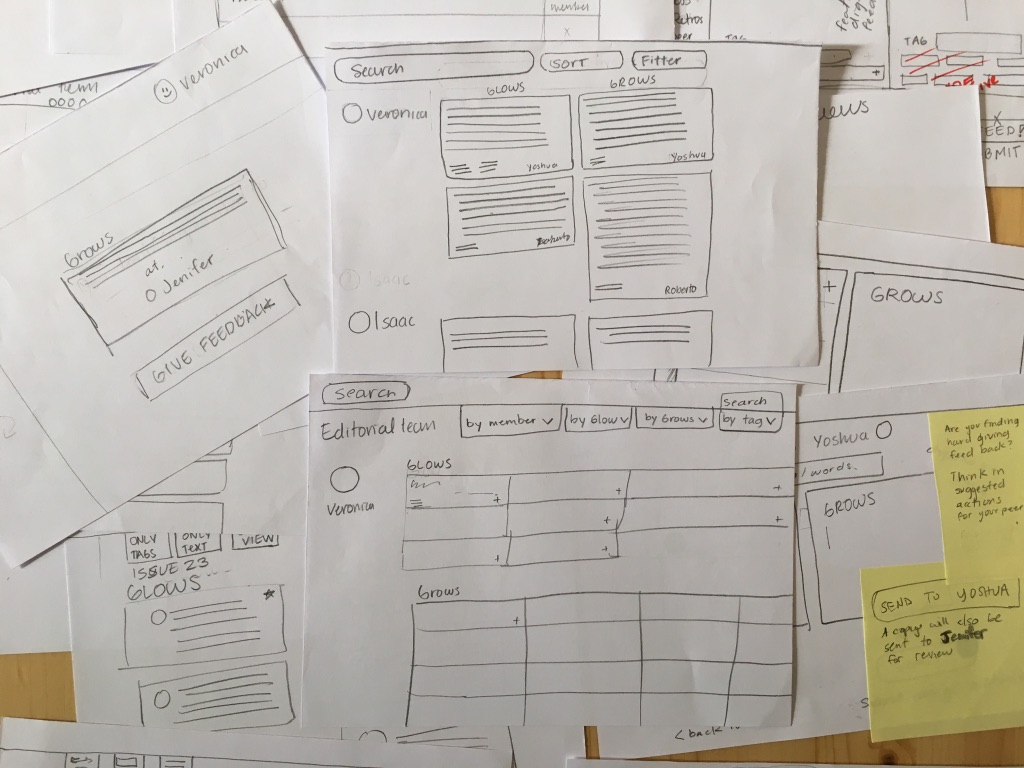 member
x
Retros
TAG
+
veronica
Grows
at,
O Jenifer
GIVE FEEDBACK
Search
SORT
Filter
GLOWS
GROWS
Veronica
Yoshua
Yoshua
Roberto
Isaac
Isaac
+
GROWS
Search
Search
Editorial team
by member
by Glow
by Grows
by tag
GLOWS
Veronica
+
+
+
+
+
+
+
Grows
+
ONLY
TAGS
ONLY
TEXT
VIEW
ISSUE 23
GLOWS
Yoshua
/words.
GROWS
Are you finding
hard giving
feed back?
Think in
suggested
actions
for your peer
SEND TO YOSHUA
A copy will also be
sent to Jenifer
for review
< back